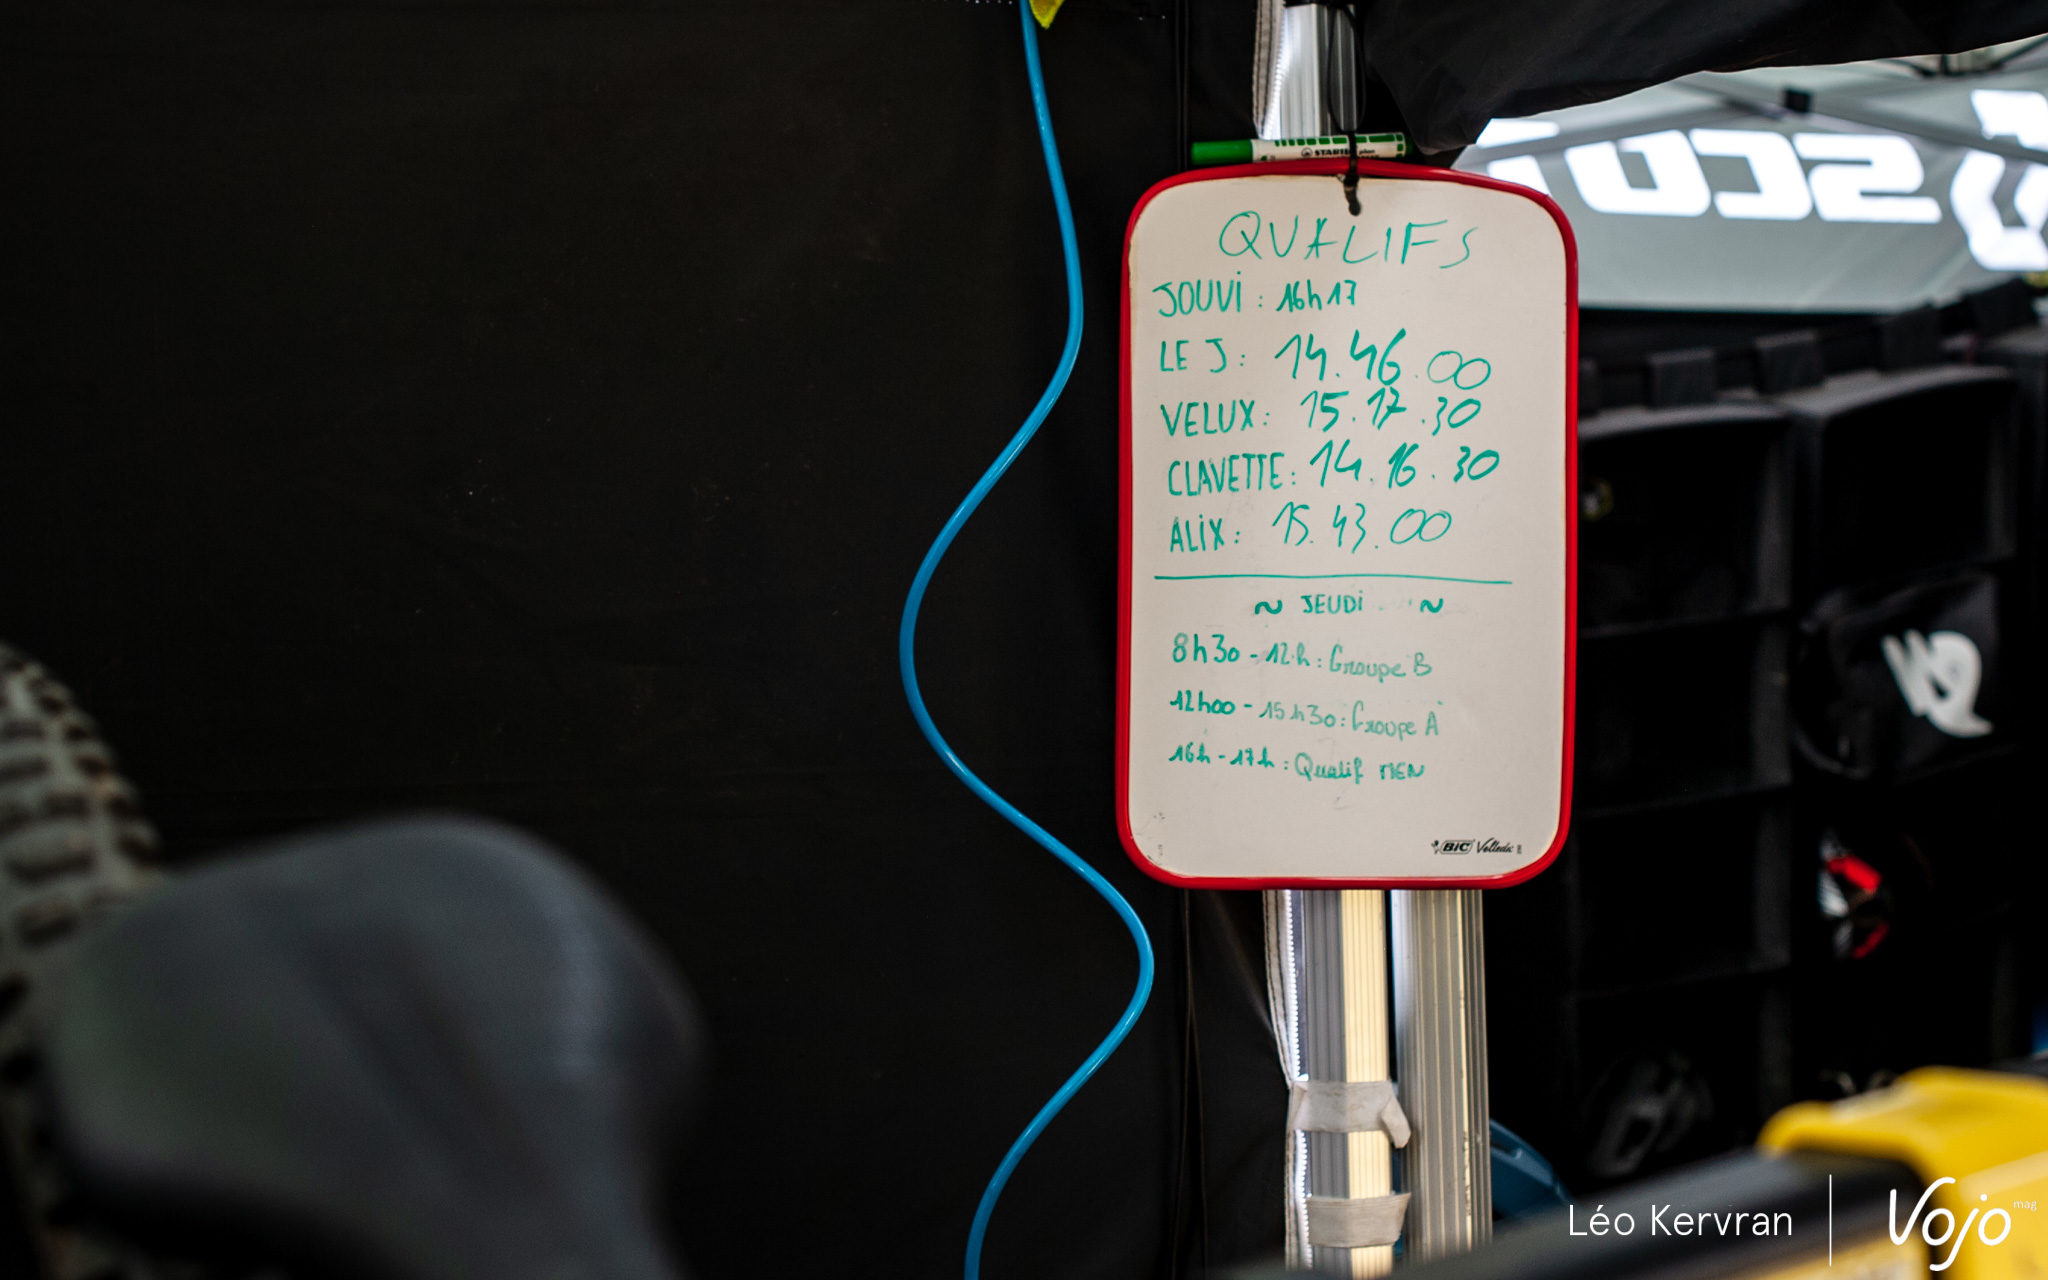 STABILO plan
SCO
QUALIFS
JOUVI : 16h17
LE J : 14.46.00
VELUX : 15.17.30
CLAVETTE : 14.16.30
ALIX : 15.43.00
~ JEUDI ~
8h30 - 12h : Groupe B
12h00 - 15h30 : Groupe A
16h - 17h : Qualif MEN
BIC Velleda
Léo Kervran
Vojo mag